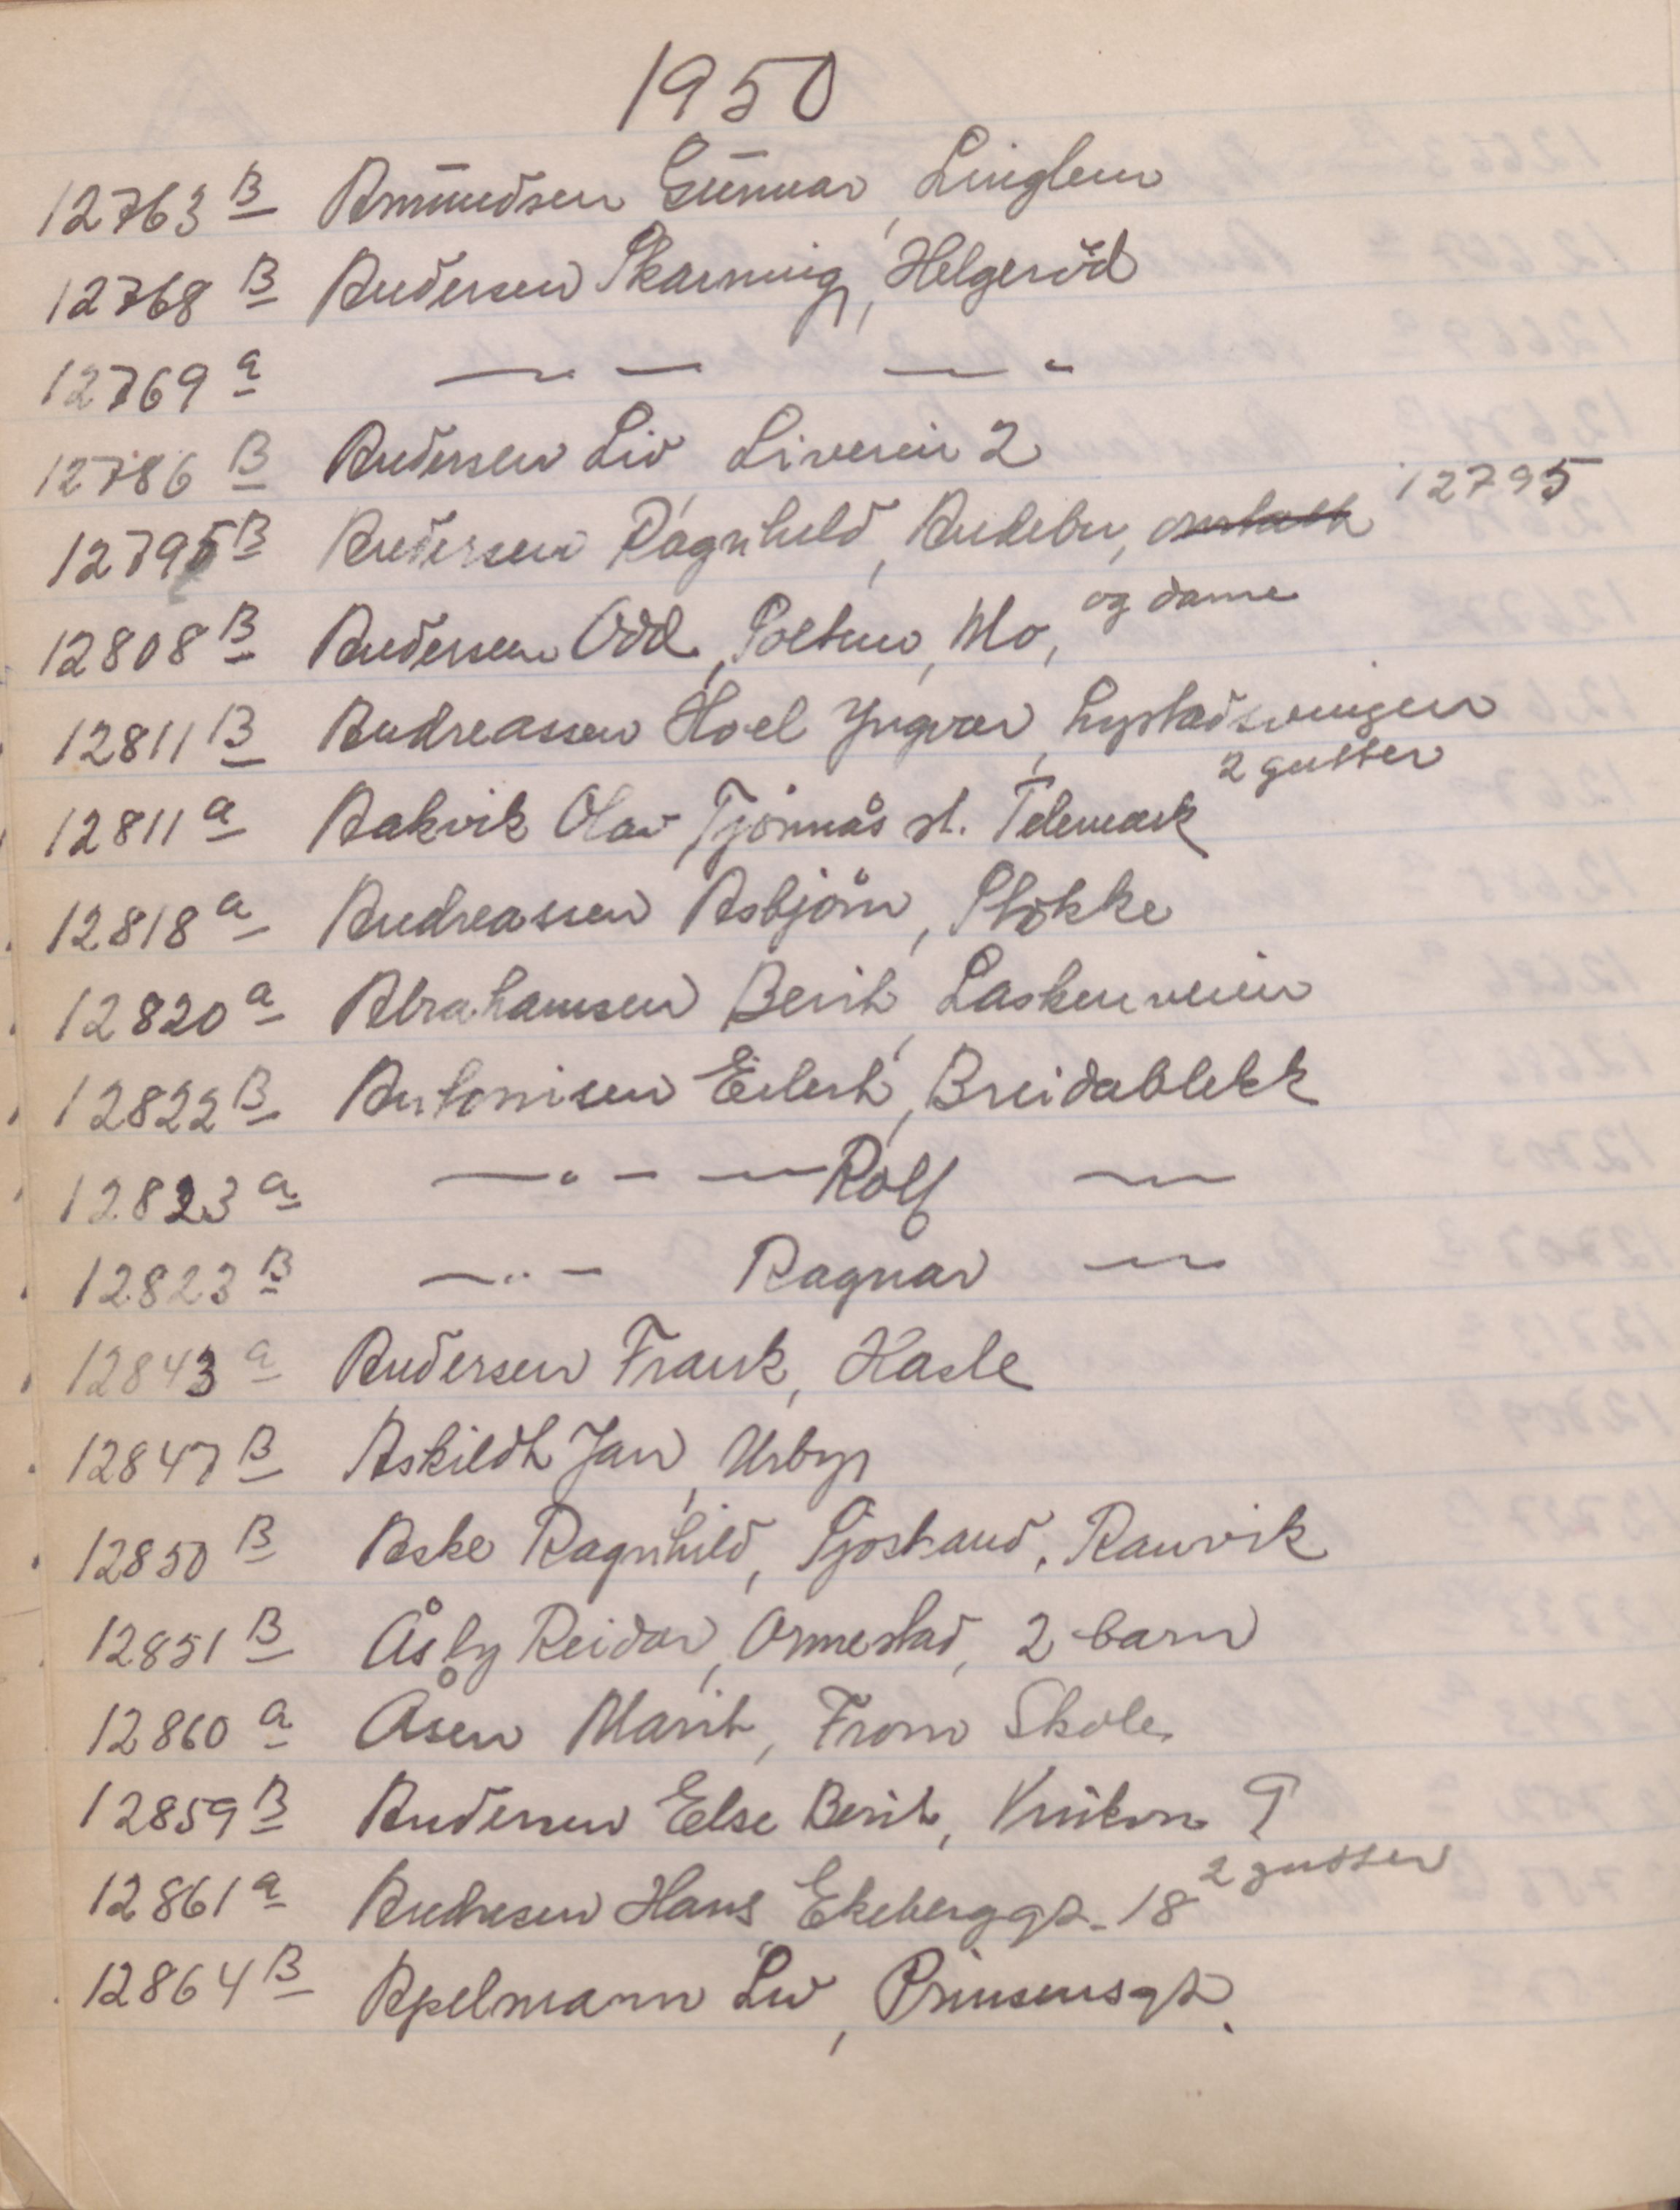 1950
12763 B Amundsen Gunnar, Linglem
12768 B Andersen Skarning, Helgerød
12769 a — " — — "
12786 B Andersen Liv Liveien 2
12795 B Andersen Ragnhild, Andebu, 12795
12808 B Andersen Odd, Soltun, Mo, og dame
12811 B Andreassen Hoel Yngvar, Lystadsvingen
2 gutter
12811 a Aakvik Olav, Tjönnås st. Telemark
12818 a Andreassen Asbjörn, Stokke
12820 a Abrahamsen Berit, Laskenveien
12822 B Antonisen Eilert, Breidablikk
12823 a — " — — Rolf — " —
12823 B — " — Ragnar — " —
12843 a Andersen Frank, Hasle
12847 B Askildt Jan, Urbyr
12850 B Aske Ragnhild, Sjöstrand, Ranvik
12851 B Åsby Reidar, Ormestad, 2 barn
12860 a Åsen Marit, Fron Skole
12859 B Andersen Else Berit, 9
12861 a Andresen Hans, Ekeberggt. 18 2 gutter
12864 B Apelmann Liv, Prinsensgt.